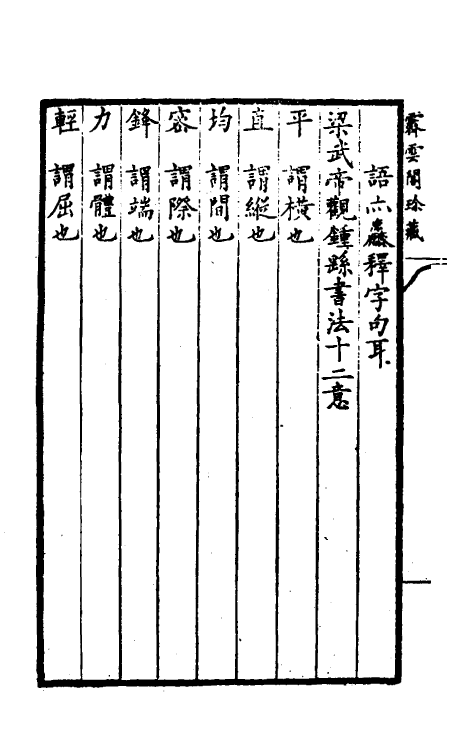 霖雲閣珍藏
語亦麤釋字句耳
梁武帝觀鍾繇書法十二意
平 謂橫也
直 謂縱也
均 謂間也
密 謂際也
鋒 謂端也
力 謂體也
輕 謂屈也